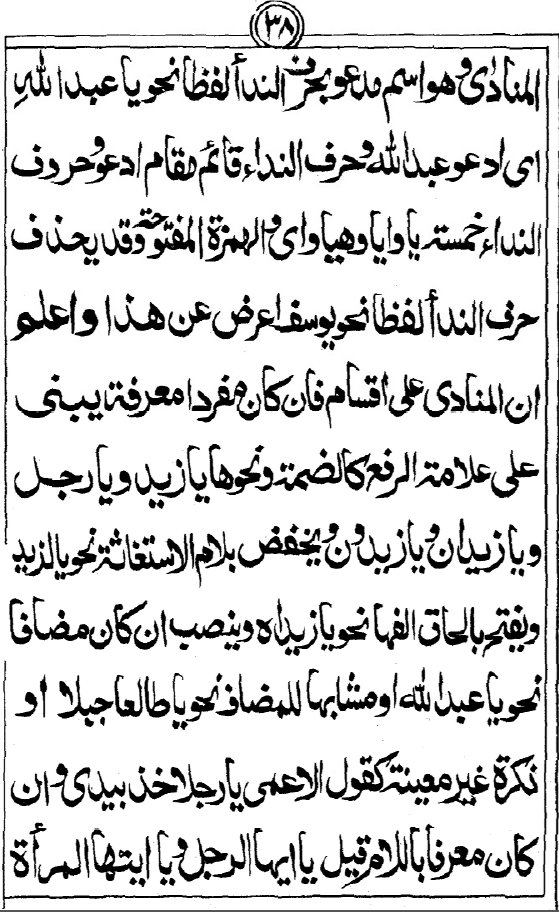 ٣٨
المنادٰى وهو اسم مدعو بحرف الندأ لفظا نحو يا عبد الله
اى ادعو عبد الله وحرف النداء قائم مقام ادعو وحروف
النداء خمسته يا وايا وهيا واى والهمزة المفتوحة وقد يحذف
حرف الندأ لفظا نحو يوسف اعرض عن هذا واعلم
ان المنادى على اقسام فان كان مفردا معرفة يبنى
على علامة الرفع كالضمة ونحوها يا زيد ويا رجل
ويا زيدان ويا زيدون ويخفض بلام الاستغاثة نحو يالزيد
ويفتح بالحاق الفها نحو يا زيداه وينصب ان كان مضافا
نحو يا عبد الله او مشابها للمضاف نحو يا طالعا جبلا او
نكرة غير معينة كقول الاعمى يا رجلا خذ بيدى وان
كان معرفا باللام قيل يا ايها الرجل ويا ايتها المرأة